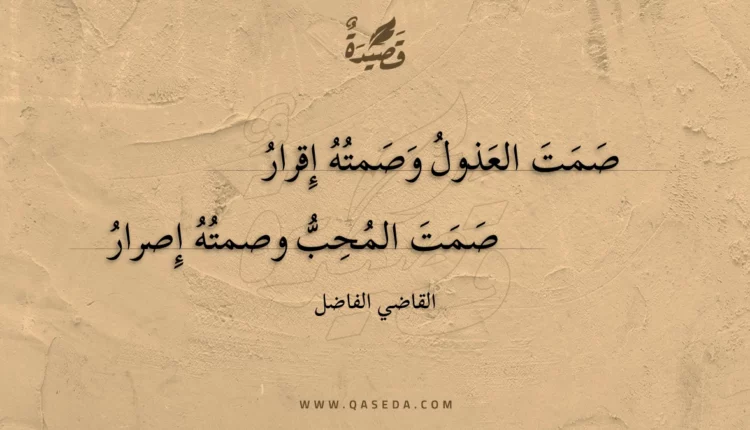 قَصِيدَةٌ
صَمَتَ العَذولُ وَصَمتُهُ إِقرارُ
صَمَتَ المُحِبُّ وصمتُهُ إِصرارُ
القاضي الفاضل
WWW.QASEDA.COM